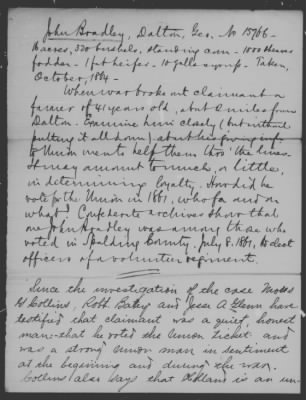 John Bradley, Dalton, Geo. No 15766
16 acres, 320 bushels, standing corn - 1000
fodder - 1 fat heifer - 10 galls syrup - Taken,
October, 1864 -
When war broke out claimant a
farmer of 41 years old, about 2 miles from
Dalton. Examine him closely (but without
putting it all down) about his giving inf
to Union men to help them thro' the lines
It may amount to much, or little,
in determining loyalty. How did he
vote for the Union in 1861, who for and on
what? Confederate archives show that
one John Bradley was among those who
voted in Spalding County. July 8. 1861, to elect
officers of a volunteer regiment.
Since the investigation of the case Moses
H Collins, Robt Batey and Jesse A Glenn have
testified that claimant was a quiet, honest
man - that he voted the Union ticket and
was a strong Union man in sentiment
at the beginning and during the war.
Collins also says that is an un-